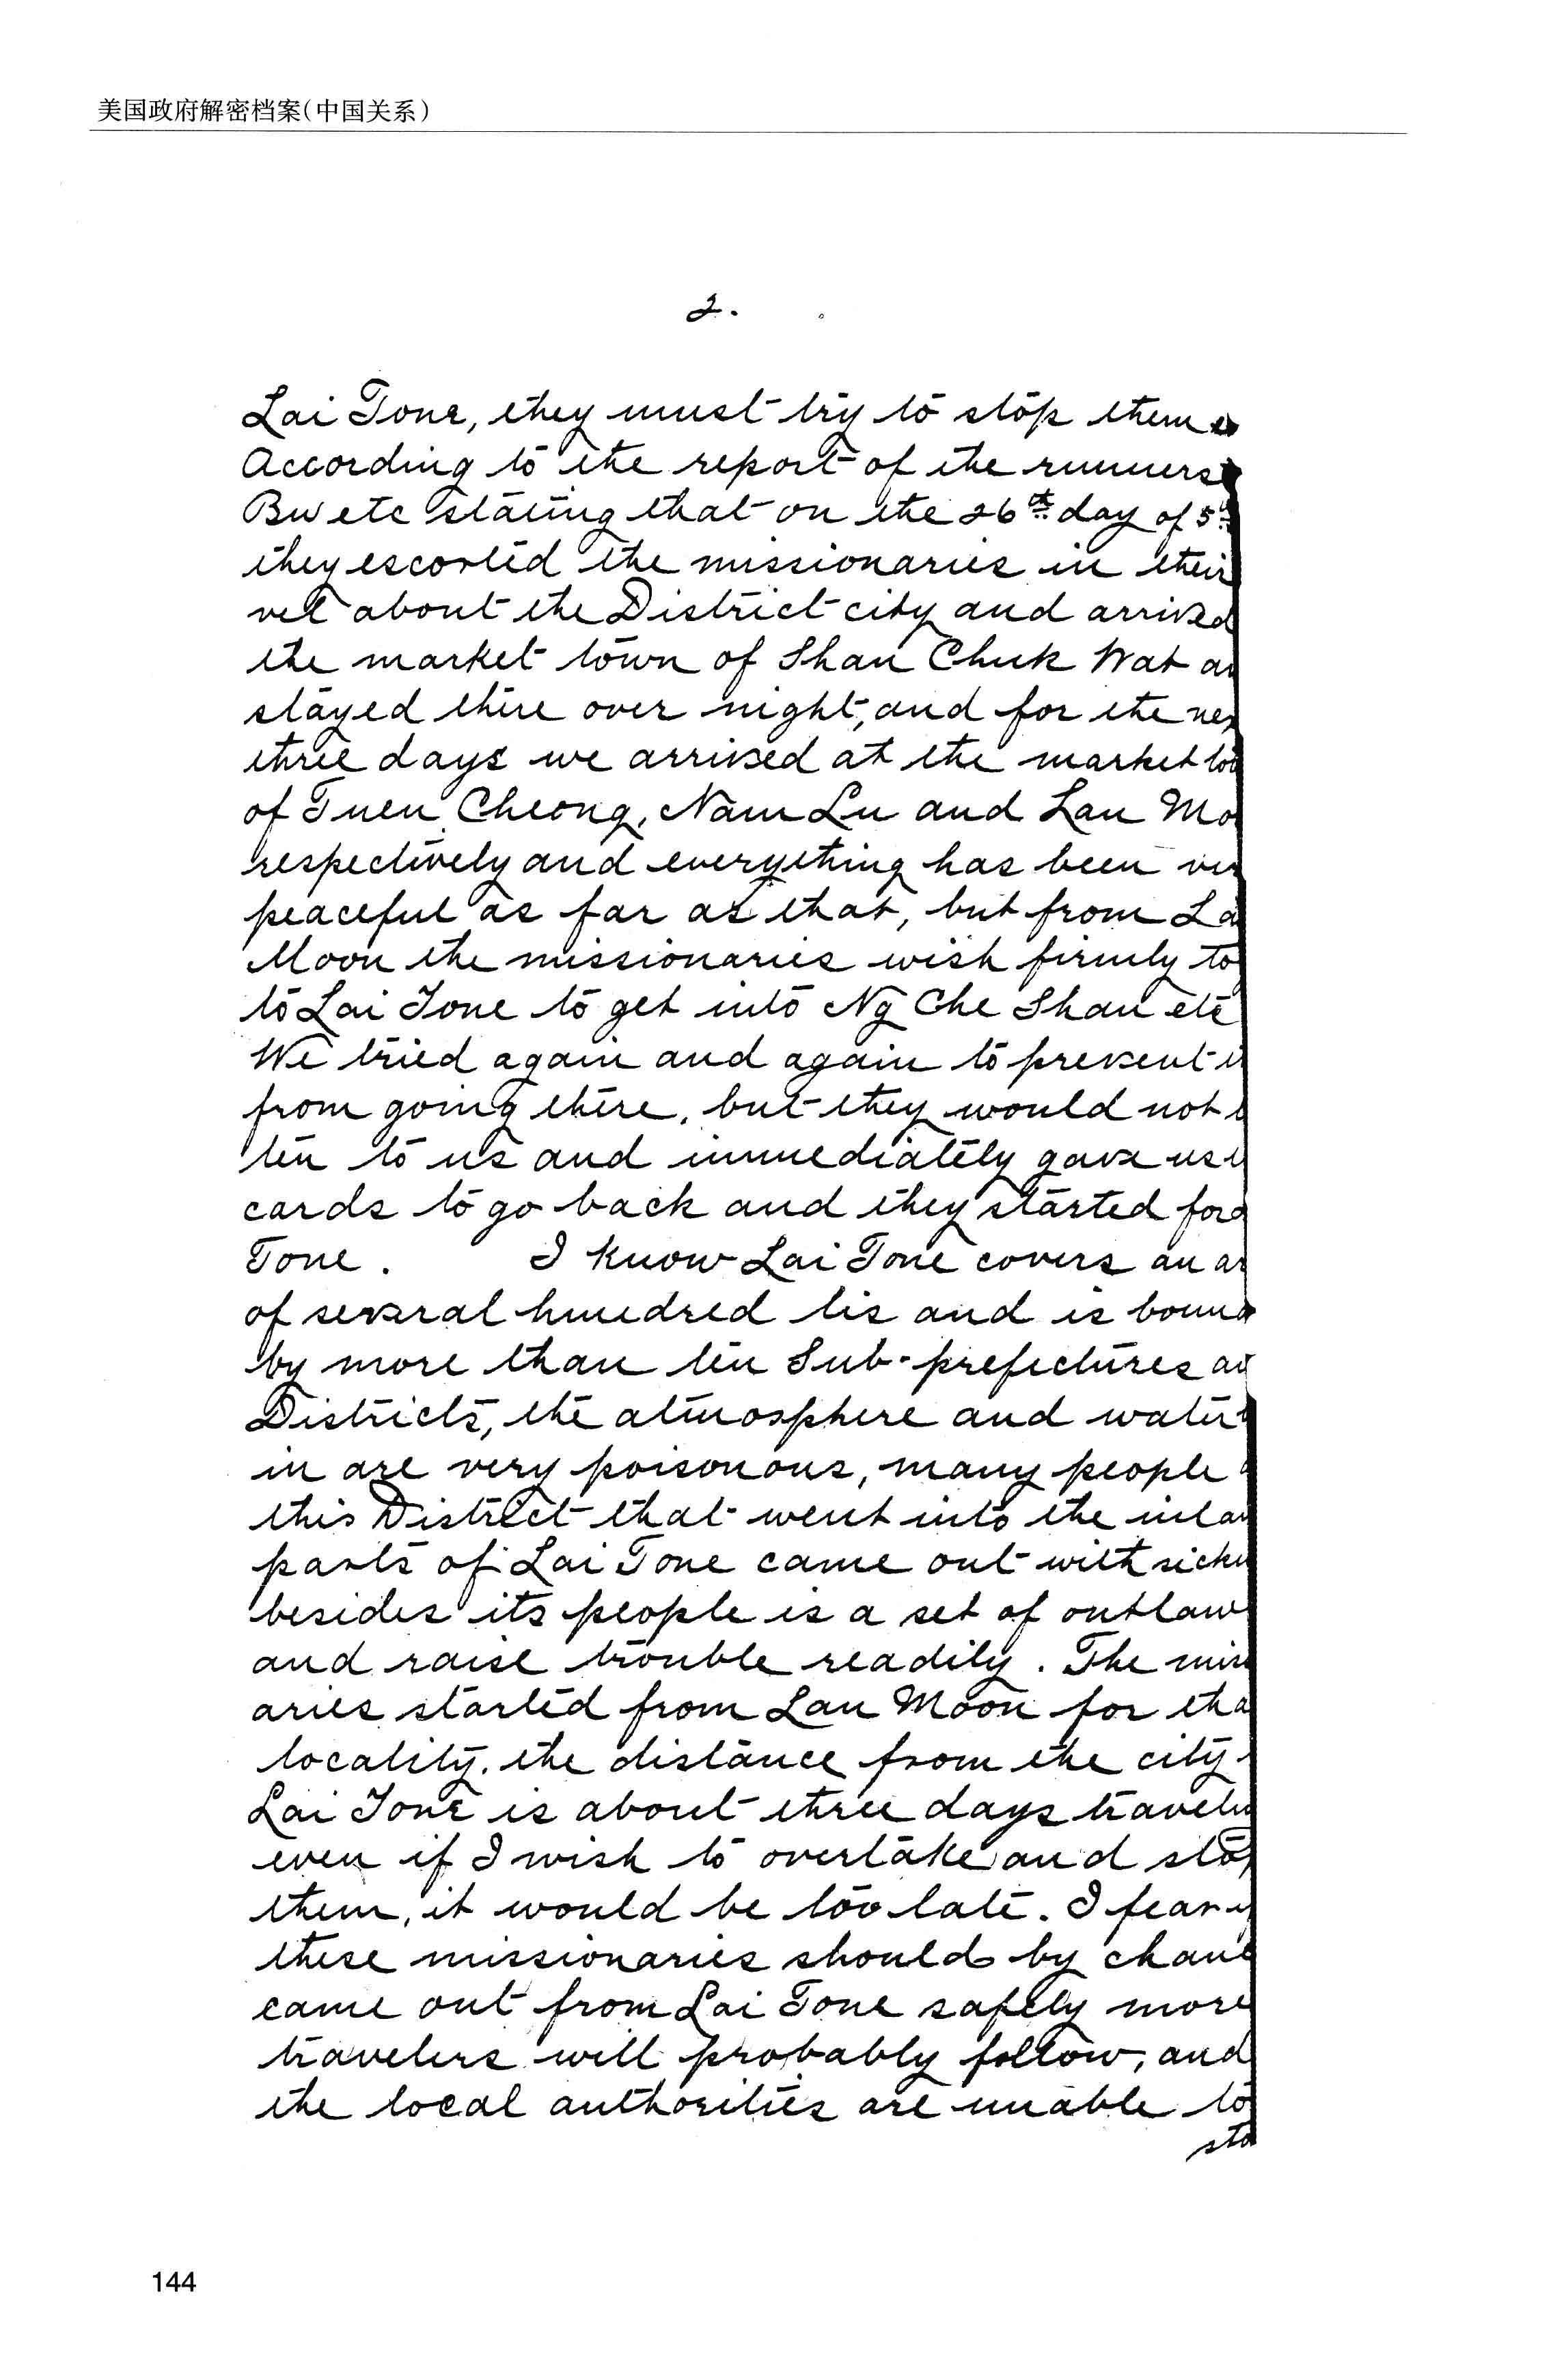 美国政府解密档案(中国关系)
2.
Lai Tone, they must try to stop them
According to the report of the runners
Bw etc stating that on the 26th day of 5th
they escorted the missionaries in their
vel about the District city and arrived
the market town of Shan Chuk Wat an
stayed there over night, and for the nex
three days we arrived at the market tow
of Tuen Cheong, Nam Lu and Lau Mo
respectively and everything has been ver
peaceful as far as that, but from La
Moon the missionaries wish firmly to
to Lai Tone to get into Ng Che Shan etc
We tried again and again to prevent
from going there, but they would not
ten to us and immediately gave us
cards to go back and they started for
Tone. I know Lai Tone covers an ar
of several hundred lis and is bound
by more than ten Sub-prefectures an
Districts, the atmosphere and water
in are very poisonous, many people
this District that went into the inlan
parts of Lai Tone came out with sickn
besides its people is a set of outlaw
and raise trouble readily. The miss
aries started from Lau Moon for tha
locality. the distance from the city
Lai Tone is about three days travelin
even if I wish to overtake and stop
them, it would be too late. I fear if
these missionaries should by chanc
came out from Lai Tone safely more
travelers will probably follow, and
the local authorities are unable to
sto
144